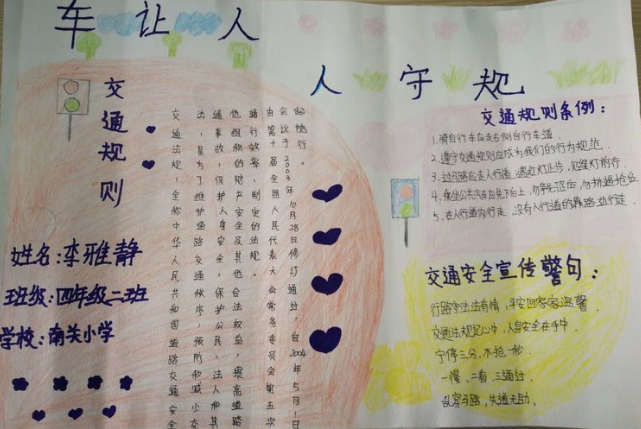 车让人
人守规
交通规则
姓名:李雅静
班级:四年级二班
学校:南关小学
交通法规,全称中华人民共和国道路交通安全
法,是为了维护道路交通秩序,预防和减少交
通事故,保护人身安全,保护公民、法人和其
他组织的财产安全及其他合法权益,提高道路
通行效率,制定的法规。
由第十届全国人民代表大会常务委员会第五次
会议于2003年10月28日修订通过,自2004年5月1日
起施行。
交通规则条例:
1.骑自行车应走右侧自行车道.
2.遵守交通规则应成为我们的行为规范.
3.过马路应走人行道,遇红灯止步,见绿灯前行.
4.乘坐公共汽车应先下后上,勿
5.在人行道内行走,没有人行道的靠路边行走.
交通安全宣传警句:
行路守法法有情,平安回家家温馨
交通法规记心中,人身安全在手中
宁停三分,不抢一秒.
一慢、二看、三通过.
乱穿马路,失道无助.